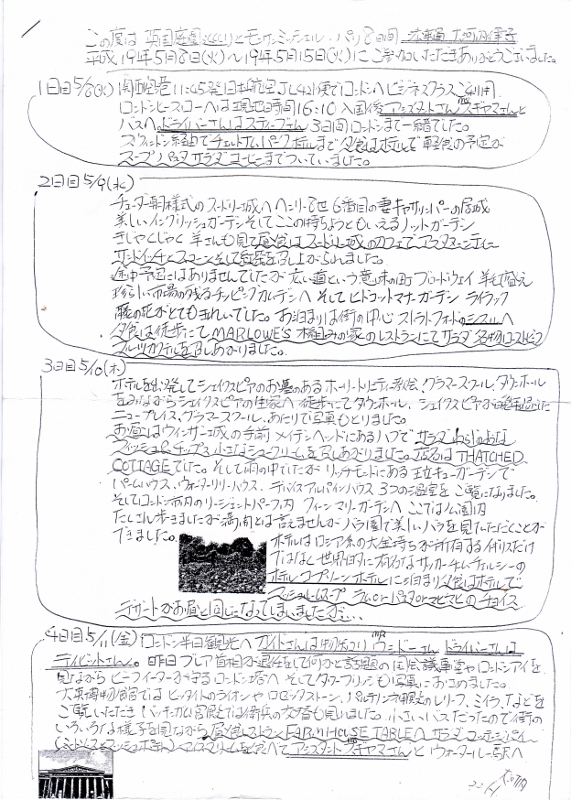 この度は 英国庭園巡りとモンサンミッシェル・パリ8日間
平成19年5月8日(火)～19年5月15日(火)にご参加いただきありがとうございました。
1日目 5/8(火) 関西空港11:45発日本航空JL421便でロンドンへビジネスクラスご利用
ロンドンヒースローへは現地時間16:10 入国後アシスタントさんスギヤマさんと
バスへ。ドライバーさんはスティーブン 3日間ロンドンまで一緒でした。
スウィンドン経由でチェルトナムパークホテルまで 夕食はホテルで軽食の予定が
スープ パスタ サラダ コーヒーまでついていました。
2日目 5/9(水)
チューダー朝様式のスードリー城へ ヘンリー8世 6番目の妻キャサリン・パーの居城
美しいイングリッシュガーデン そしてここの特ちょうともいえるノットガーデン
きじやくじゃく 羊さんも見て昼食はスードリー城のカフェで
サンドイッチとスコーン そして紅茶を召し上がられました。
途中予定にはありませんでしたが 広い道という意味の町 ブロードウェイ
昔からの市場の残るチッピングカムデンへ そして ヒドコットマナーガーデン ライラック
藤の花がとてもきれいでした。お泊まりは街の中心 ストラトフォードの
夕食は徒歩にて MARLOWE'S 木組みの家のレストランにて サラダ 名物ローストビーフ
フルーツカクテルを召しあがりました。
3日目 5/10(木)
ホテルを出発してシェイクスピアのお墓のあるホーリートリニティ教会、グラマースクール、タウンホール
をみながらシェイクスピアの生家へ 徒歩にてタウンホール、シェイクスピアが
ニュープレイス、グラマースクール、あたりで写真もとりました。
お昼はウィンザー城の手前 メイデンヘッドにあるパブで サラダ
フィッシュ&チップス 小さなシュークリームを召しあがりました。店名は THATCHED
COTTAGEでした。そして雨の中でしたが リッチモンドにある王立キューガーデンで
パームハウス、ウォーターリリーハウス、デイビスアルパインハウス 3つの温室を ご覧になりました。
そしてロンドン市内のリージェントパーク内 クィーンマリーガーデンへ ここでは公園内
たくさん歩きましたが 満開とは言えませんが バラ園で美しいバラを見ていただくことが
できました。
ホテルはロシア系の大金持ちが所有するイギリスだけ
ではなく世界的に有名なサッカーチーム チェルシーの
ホテル コプソーンホテルに泊まり 夕食はホテルで
マッシュルームスープ ラム or パスタ or マヒマヒのチョイス
デザートがお昼と同じになってしまいましたが…
4日目 5/11(金) ロンドン半日観光へ ガイドさんは ドライバーさんは
デイビットさん。昨日ブレア首相が退任をして何かと話題の国会議事堂やロンドンアイを
見ながら ビーフィーターが守るロンドン塔へ そしてタワーブリッジも写真におさめました。
大英博物館では ヒッタイトのライオンや ロゼッタストーン、パルテノン神殿のレリーフ、ミイラ、などを
ご覧いただき バッキンガム宮殿では衛兵の交替も見ました。小さいバスだったので街の
いろいろな様子を見ながら 昼食レストラン FARMHOUSE TABLEへ サラダ コテージパイ
を食べて アシスタント スギヤマさんと ウォータールー駅へ